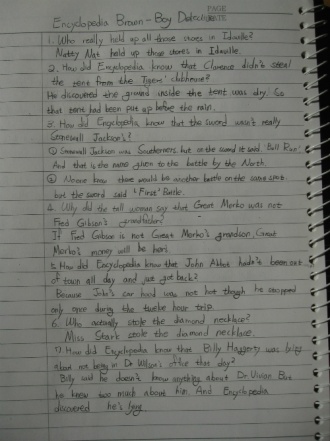 PAGE
DATE
Encyclopedia Brown - Boy Detective
1. Who really held up all those stores in Idaville?
Natty Nat held up those stores in Idaville.
2. How did Encyclopedia know that Clarence didn't steal
the tent from the Tigers' clubhouse?
He discovered the ground inside the tent was dry. So
that tent had been put up before the rain.
3. How did Encyclopedia know that the sword wasn't really
Stonewall Jackson's?
① Stonewall Jackson was Southerners but on the sword it said Bull Run.
And that is the name given to the battle by the North
② No one knew there would be another battle on the same spot
but the sword said 'First' Battle.
4. Why did the tall woman say that Great Merko was not
Fred Gibson's grandfather?
If Fred Gibson is not Great Merko's grandson, Great
Merko's money will be hers.
5. How did Encyclopedia know that John Abbot hadn't been out
of town all day and just got back?
Because John's car hood was not hot though he stopped
only once during the twelve hour trip.
6. Who actually stole the diamond necklace?
Miss Stark stole the diamond necklace.
7. How did Encyclopedia know that Billy Haggerty was lying
about not being in Dr. Wilson's office that day?
Billy said he doesn't know anything about Dr. Vivian. But
he knew too much about him. And Encyclopedia
discovered he's lying.